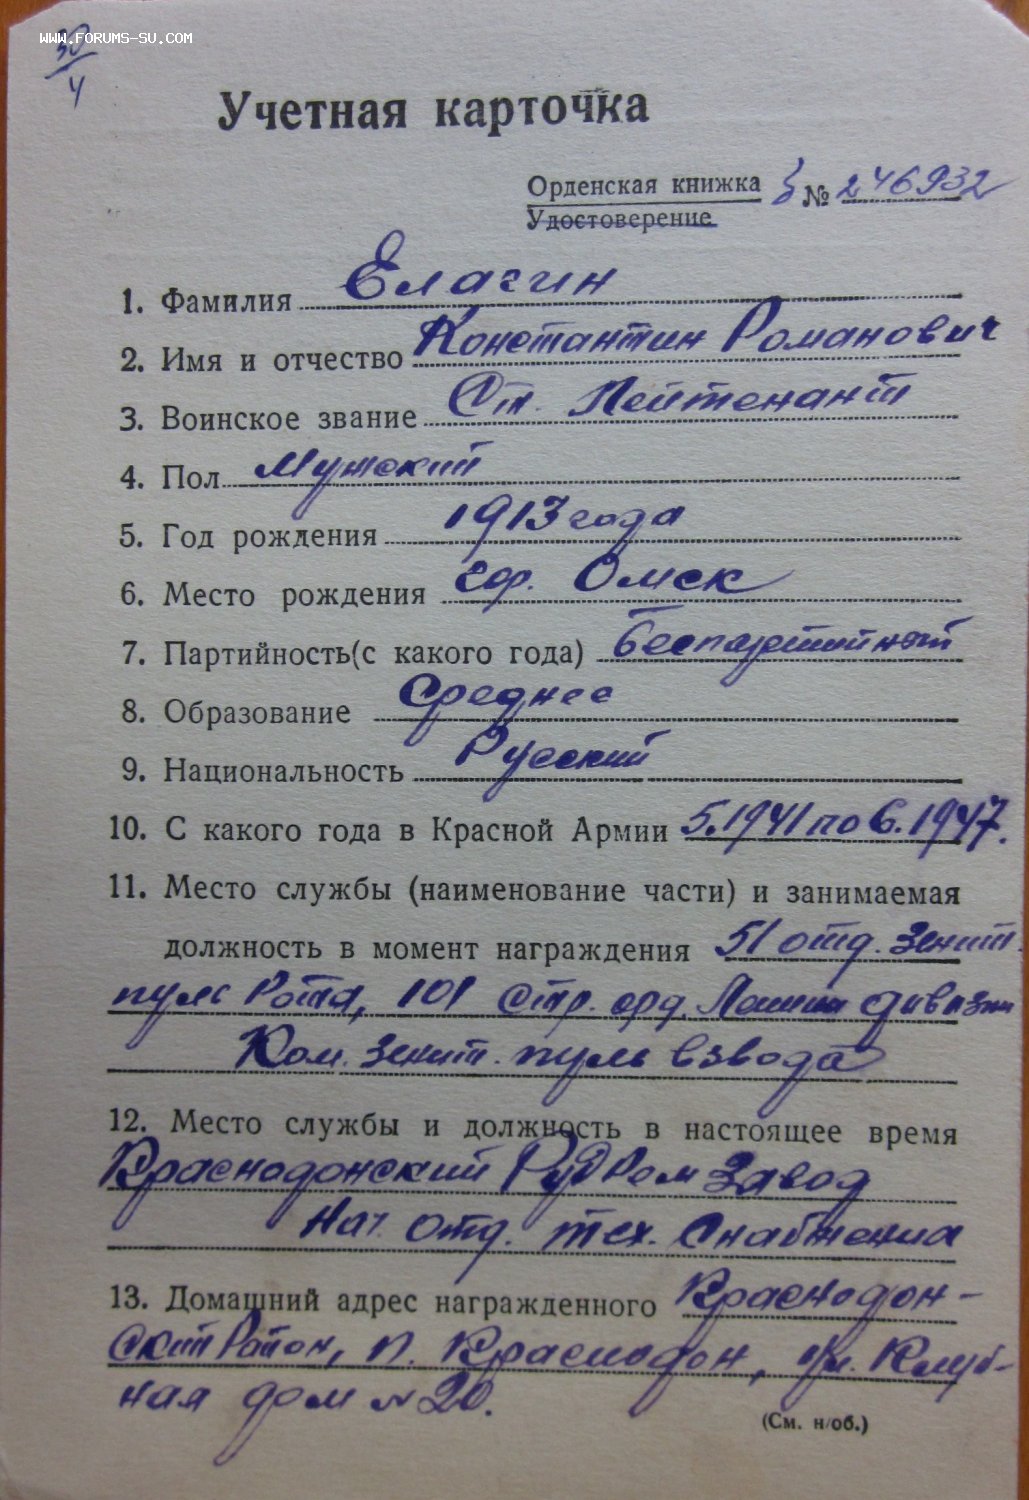 WWW.FORUMS-SU.COM
30/4
Учетная карточка
Орденская книжка З № 246932
Удостоверение
1. Фамилия Елагин
2. Имя и отчество Константин Романович
3. Воинское звание Ст. Лейтенант
4. Пол Мужской
5. Год рождения 1913 года
6. Место рождения гор. Омск
7. Партийность (с какого года) беспартийный
8. Образование Среднее
9. Национальность Русский
10. С какого года в Красной Армии 5.1941 по 6.1947.
11. Место службы (наименование части) и занимаемая
должность в момент награждения 51 отд. Зенит.
пуль Рота, 101 стр. орд. Ленина дивизии
Ком. зенит. пуль взвода
12. Место службы и должность в настоящее время
Краснодонский РудРемЗавод
Нач. отд. тех. Снабжения
13. Домашний адрес награжденного Краснодон-
ский Район, п. Краснодон, ул. Клуб-
ная дом № 20.
(См. н/об.)